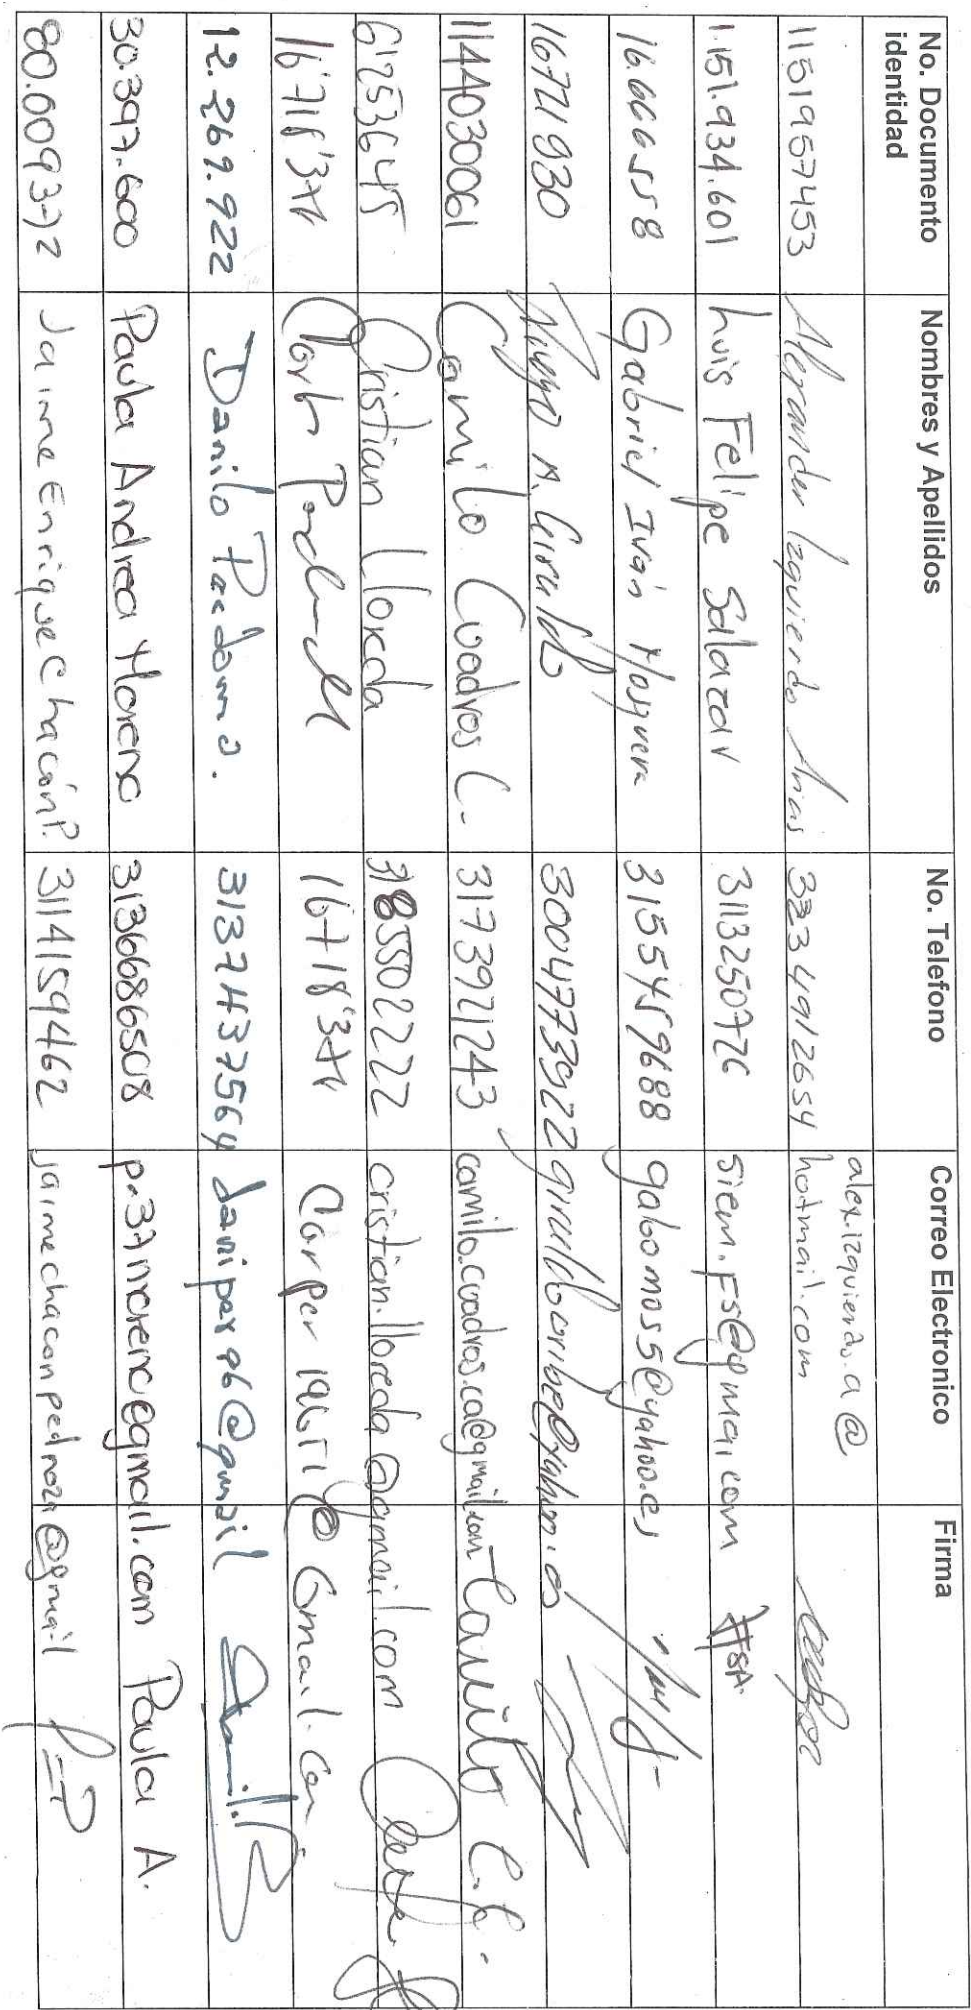 No. Documento identidad Nombres y Apellidos No. Telefono Correo Electronico Firma
1151957453 Alexander Izquierdo Arias 3234912654 alex.izquierdo.a@hotmail.com
1.151.934.601 Luis Felipe Salazar 3113250776 siem.FS@gmai.com FSA.
16.666.558 Gabriel Iván Mosquera 3155459688 gabomos5@yahoo.es
16721930 3004773922
1144030061 Camilo Cuadros C. 3173921243 camilo.cuadros.ca@gmail.com Camilo C.C.
6253645 Cristian Lloreda 3185502222 cristian.lloreda@gmail.com
@Gmail.Com
12.269.922 Danilo Perdomo. 3137437564 daniper96@gmail
30.397.600 Paula Andrea Moreno 3136686508 pa37moreno@gmail.com Paula A.
80.009372 Jaime Enrique Chacón P. 3114159462 jaimechaconpedroza@gmail